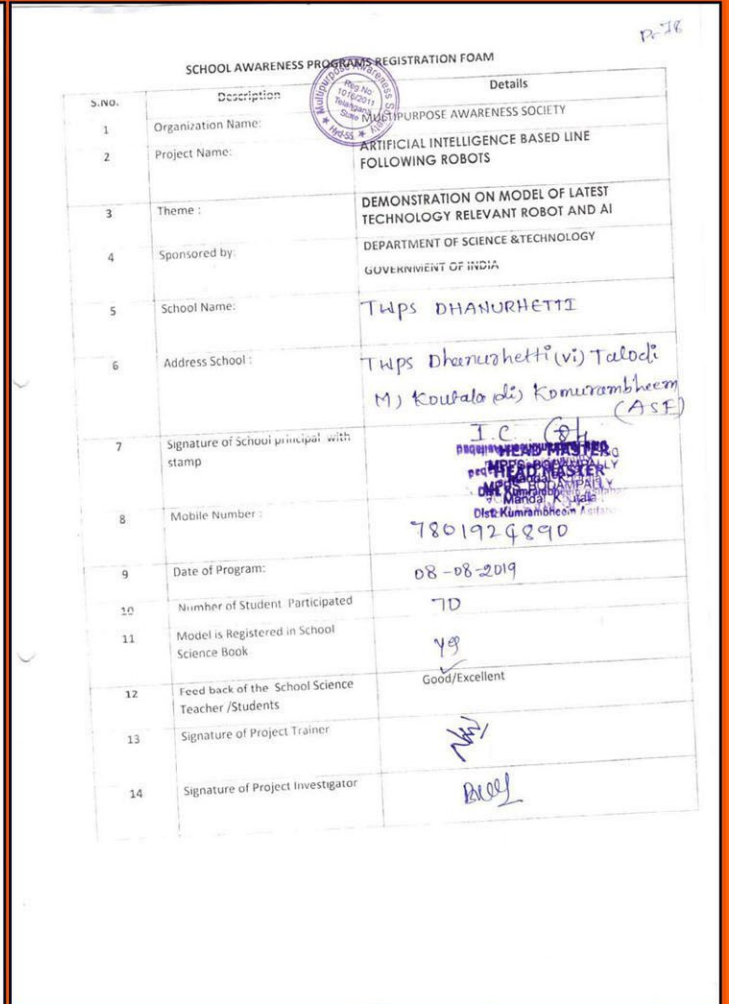 Pr-78
SCHOOL AWARENESS PROGRAMS REGISTRATION FOAM
Multipurpose Awareness Society
Reg No
1016/2011
Telangana
State
Hyd-55
S.No. Description Details
1 Organization Name: MULTIPURPOSE AWARENESS SOCIETY
2 Project Name: ARTIFICIAL INTELLIGENCE BASED LINE
FOLLOWING ROBOTS
3 Theme : DEMONSTRATION ON MODEL OF LATEST
TECHNOLOGY RELEVANT ROBOT AND AI
4 Sponsored by: DEPARTMENT OF SCIENCE &TECHNOLOGY
GOVERNMENT OF INDIA
5 School Name: TWPS DHANURHETTI
6 Address School : TWPS Dhanurhetti (vi) Talodi
M) Koutala di) Komurambheem
(ASF)
7 Signature of School principal with
stamp
I.C
HEAD MASTER
HEAD MASTER
MPPS BODAMPALLY
Mandal Koutala
Dist: Kumrambheem
8 Mobile Number : 7801924890
9 Date of Program: 08-08-2019
10 Number of Student Participated 70
11 Model is Registered in School
Science Book
yes
12 Feed back of the School Science
Teacher /Students
Good/Excellent
13 Signature of Project Trainer
14 Signature of Project Investigator